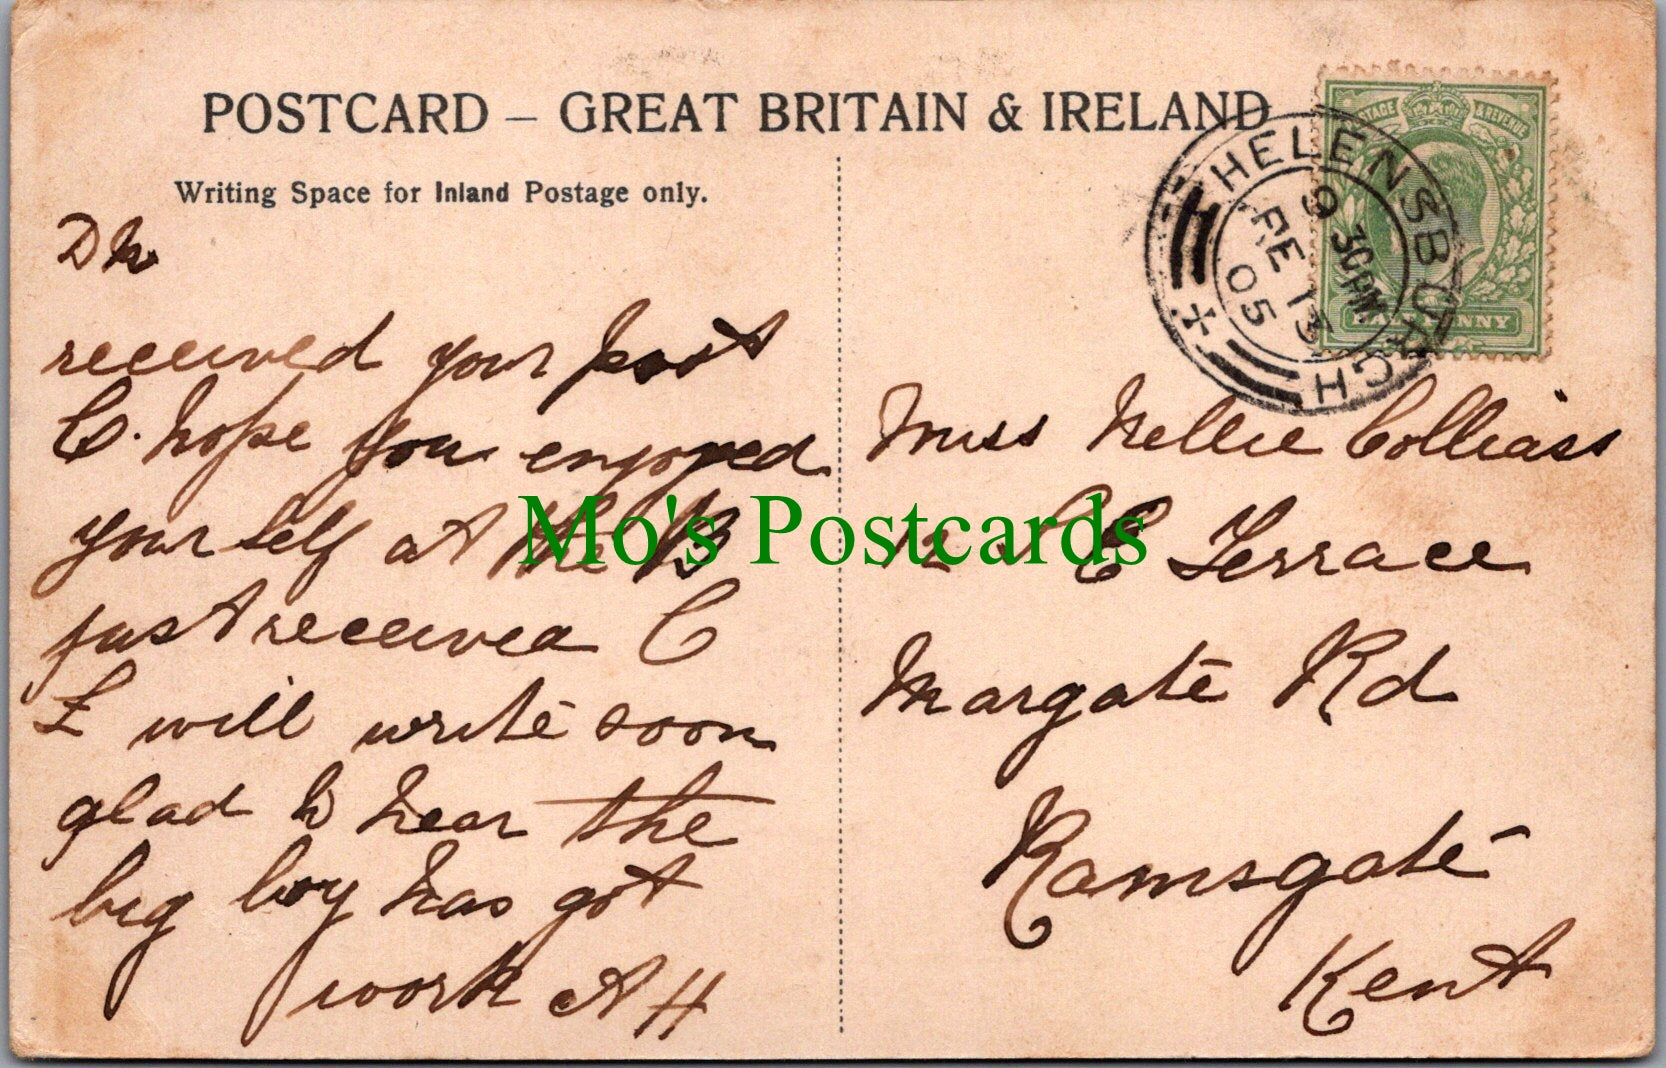 POSTCARD – GREAT BRITAIN & IRELAND
Writing Space for Inland Postage only.
D N
received your post
C. hope you enjoyed
yourself at the B
just received C
I will write soon
glad to hear the
big boy has got
work A H
HELENSBURGH
9 30PM
RE 13
05
POSTAGE & REVENUE
HALFPENNY
Miss Nellie
12 Terrace
Margate Rd
Ramsgate
Kent
Mo's Postcards